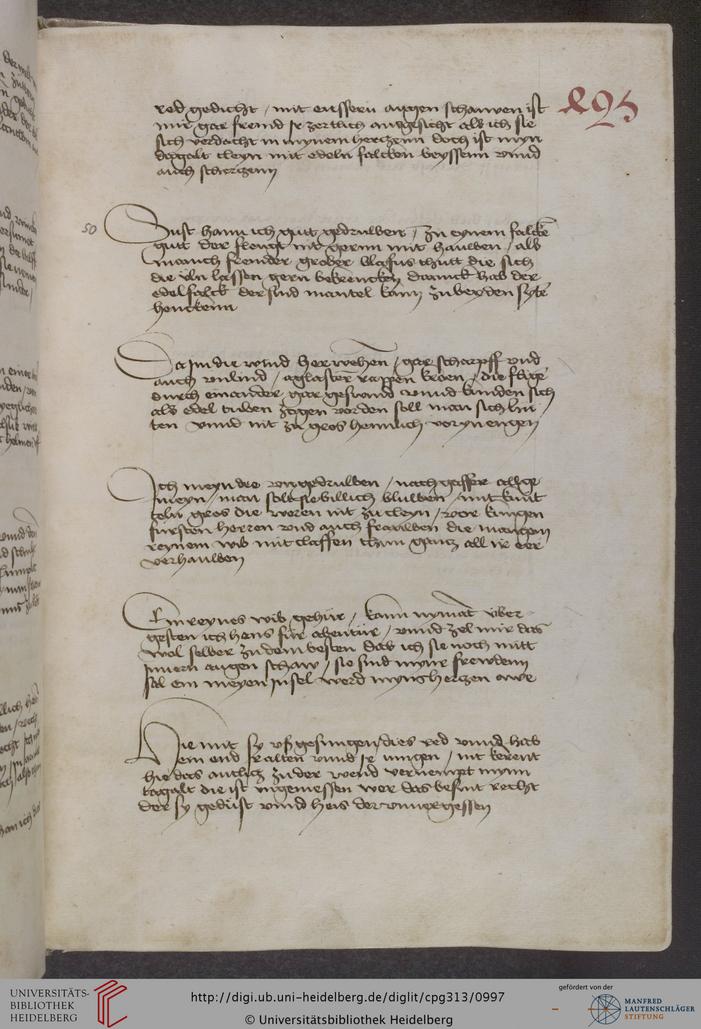 red gedicht / mit eussern augen schauwen ist
mir gar fremd ir zertlich angesicht als ich sie
sich verdacht in mynem herczenn doch ist myn
dagalt cleyn mit edeln falcken beyssenn vnnd
auch scherczenn
495
50
Sust hann ich gut gedruwen / zu eynem falcken
gutt der fleugt nit gernn mit hauwen / als
manch fremder grober blafus thutt die sich
die vln lassen gern bekrencken danck hab der
edel falck der sind mantel kann zu beyden syten
henckenn
So im die wind her wehen / gar scharpff vnd
auch vnlind / aglaster rappen kroen / die flige
durch einander gar geswind vnnd binden sich
als edel tuben zogen vor den soll man sich hu
ten vnnd nit zu gros heimlich
Ich meyn die vngedruwen / nachgaffer allge
meyn / man solt sie billich bluwen / mit knut
teln gros die weren nit zu cleyn / vor kungen
fursten herren vnd auch frauwen die manchem
reynem wib mit claffen thun gancz all ir eer
verhauwen
Ein reynes wib gehür / kann nymant vber
gesten ich hens für abentür / vnnd zel mir das
wol selber zu dem besten das ich sie noch mitt
innern augen schaw / sie sind myner frewden
sal ein meyen insel werd myns herczen awe
Hie mit sy vß gesungen / dies red vnnd hab
ein end ir alten vnnd ir iungen / nit kerent
hie das antlicz zu der wend vernempt mynn
tagalt die ist vngemessen wer das besint recht
der sy gedüst vnnd heis der vnuergessen
UNIVERSITÄTS-
BIBLIOTHEK
HEIDELBERG
http://digi.ub.uni-heidelberg.de/diglit/cpg313/0997
© Universitätsbibliothek Heidelberg
gefördert von der
MANFRED
LAUTENSCHLÄGER
STIFTUNG